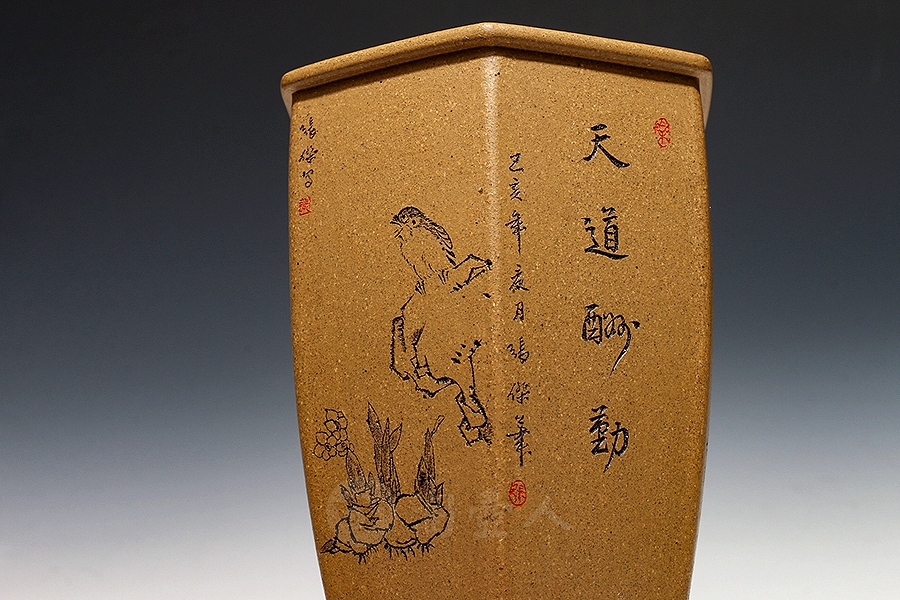 天道酬勤
己亥年夏月張傑筆
張傑写
壶人